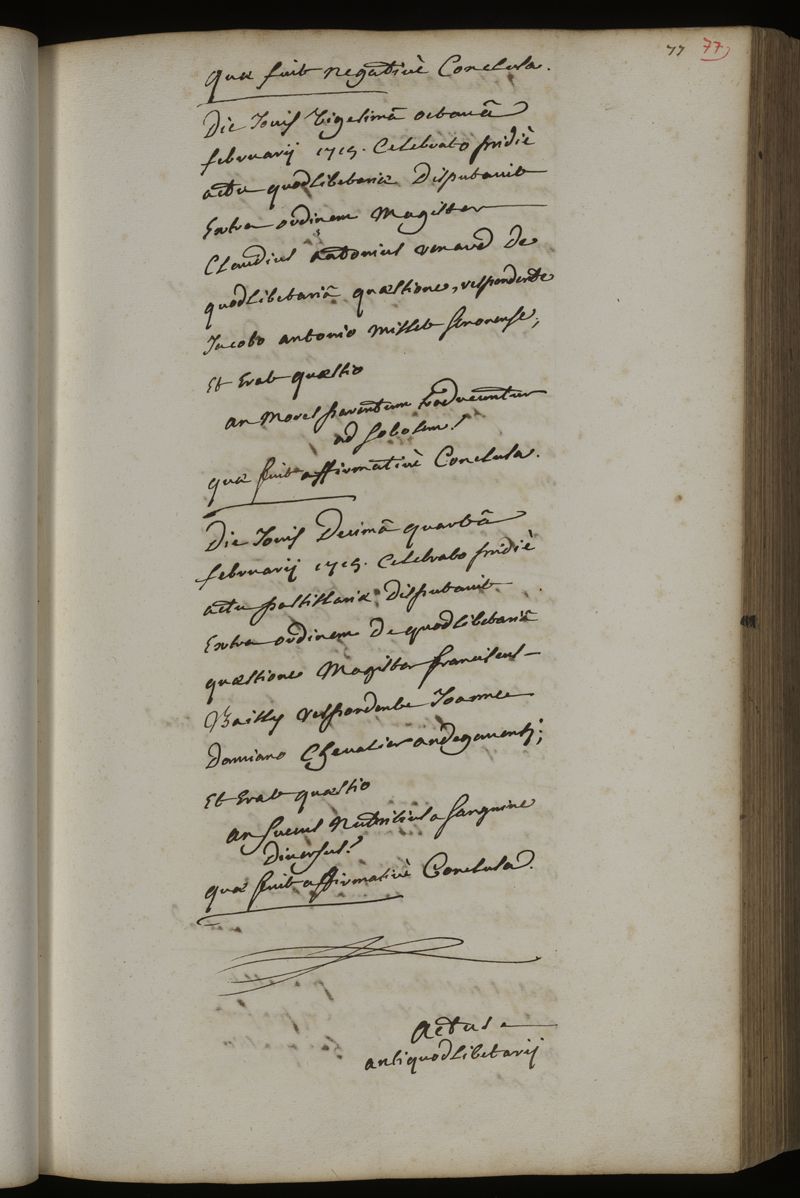 77 77
quæ fuit negativè Conclusa.
Die Jovis Vigesimâ octavâ
februarij 1715. Celebrato pridiè
actu quodlibetariæ Disputavit
Extra ordinem Magister
Claudius Antonius renard de
quodlibetariâ quæstione, respondente
Jacobo antonio Millet Senonense,
Et Erat quæstio
an Mores parentum traducuntur
ad sobolem?
quæ fuit affirmativè Conclusa.
Die Jovis Decimâ quartâ
februarij 1715. Celebrato pridiè
actu pastillariæ Disputavit
Extra ordinem De quodlibetariâ
quæstione Magister franciscus
Bailly respondente Joanne
Damiano Chevalier andegavensj;
Et Erat quæstio
an succus Nutritius a sanguine
Diversus?
quæ fuit affirmativè Conclusa.
Actus
antiquodlibetarij